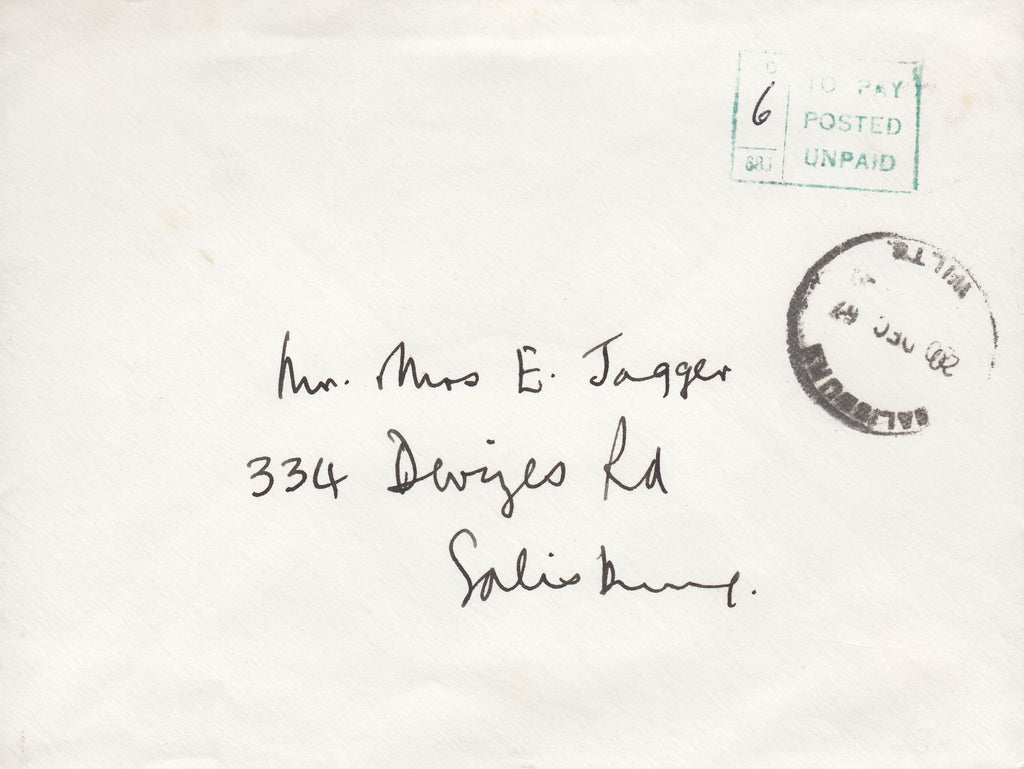 D
6
TO PAY
POSTED
UNPAID
SALISBURY
WILTS.
20 DEC 67
Mr. Mrs E. Jagger
334 Devizes Rd
Salisbury.